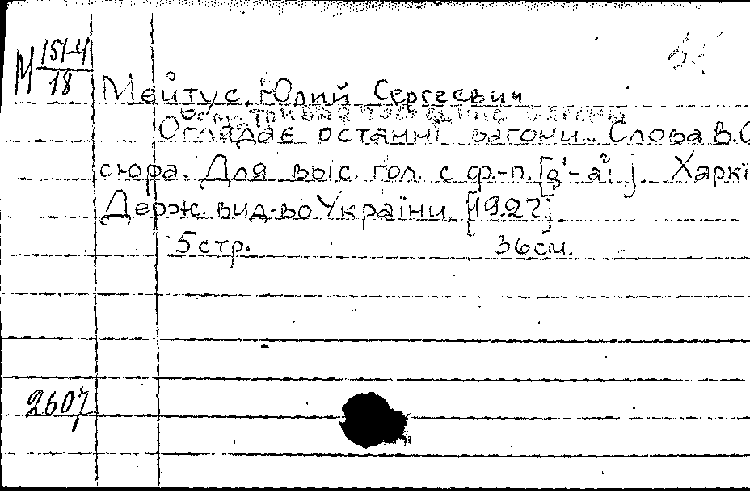 М 1514/18
Мейтус, Юлий Сергеевич
Оглядає останні вагони. Слова В. С
сюра. Для выс. гол. с ф.-п. [g¹-a²]. Харкі
Держ. вид-во України [1927].
5 стр. 36 см.
2607